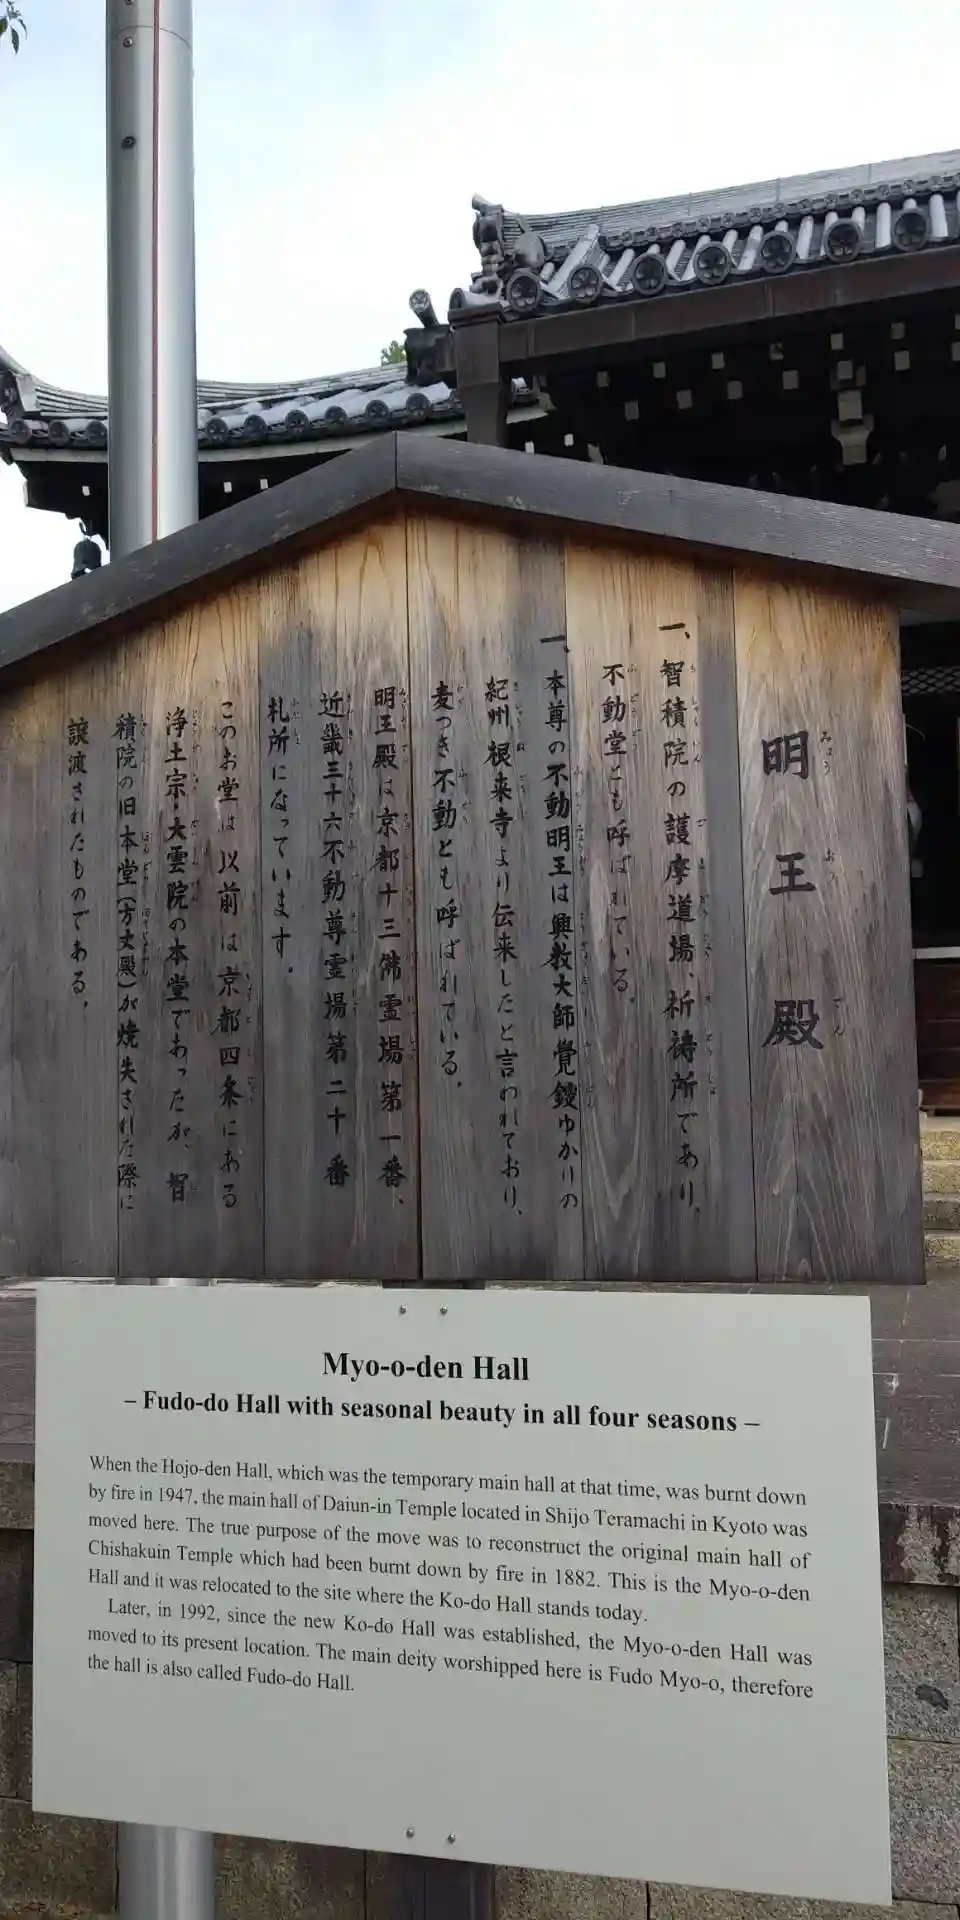 明王殿
一、智積院の護摩道場、祈祷所であり、
不動堂とも呼ばれている。
一、本尊の不動明王は興教大師覚鑁ゆかりの
紀州根来寺より伝来したと言われており、
麦つき不動とも呼ばれている。
明王殿は京都十三佛霊場第一番、
近畿三十六不動尊霊場第二十番
札所になっています。
このお堂は以前は京都四条にある
浄土宗・大雲院の本堂であったが、智
積院の旧本堂(方丈殿)が焼失された際に
譲渡されたものである。
Myo-o-den Hall
– Fudo-do Hall with seasonal beauty in all four seasons –
When the Hojo-den Hall, which was the temporary main hall at that time, was burnt down
by fire in 1947, the main hall of Daiun-in Temple located in Shijo Teramachi in Kyoto was
moved here. The true purpose of the move was to reconstruct the original main hall of
Chishakuin Temple which had been burnt down by fire in 1882. This is the Myo-o-den
Hall and it was relocated to the site where the Ko-do Hall stands today.
Later, in 1992, since the new Ko-do Hall was established, the Myo-o-den Hall was
moved to its present location. The main deity worshipped here is Fudo Myo-o, therefore
the hall is also called Fudo-do Hall.